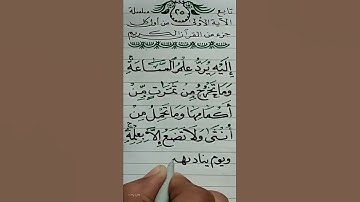 تابع سلسلة
الآية الأولى من أول كل
جزء من القرآن الكريم
٢٥
إِلَيْهِ يُرَدُّ عِلْمُ السَّاعَةِ
وَمَا تَخْرُجُ مِن ثَمَرَٰتٍ مِّنْ
أَكْمَامِهَا وَمَا تَحْمِلُ مِنْ
أُنثَىٰ وَلَا تَضَعُ إِلَّا بِعِلْمِهِ
ويوم يناديهم